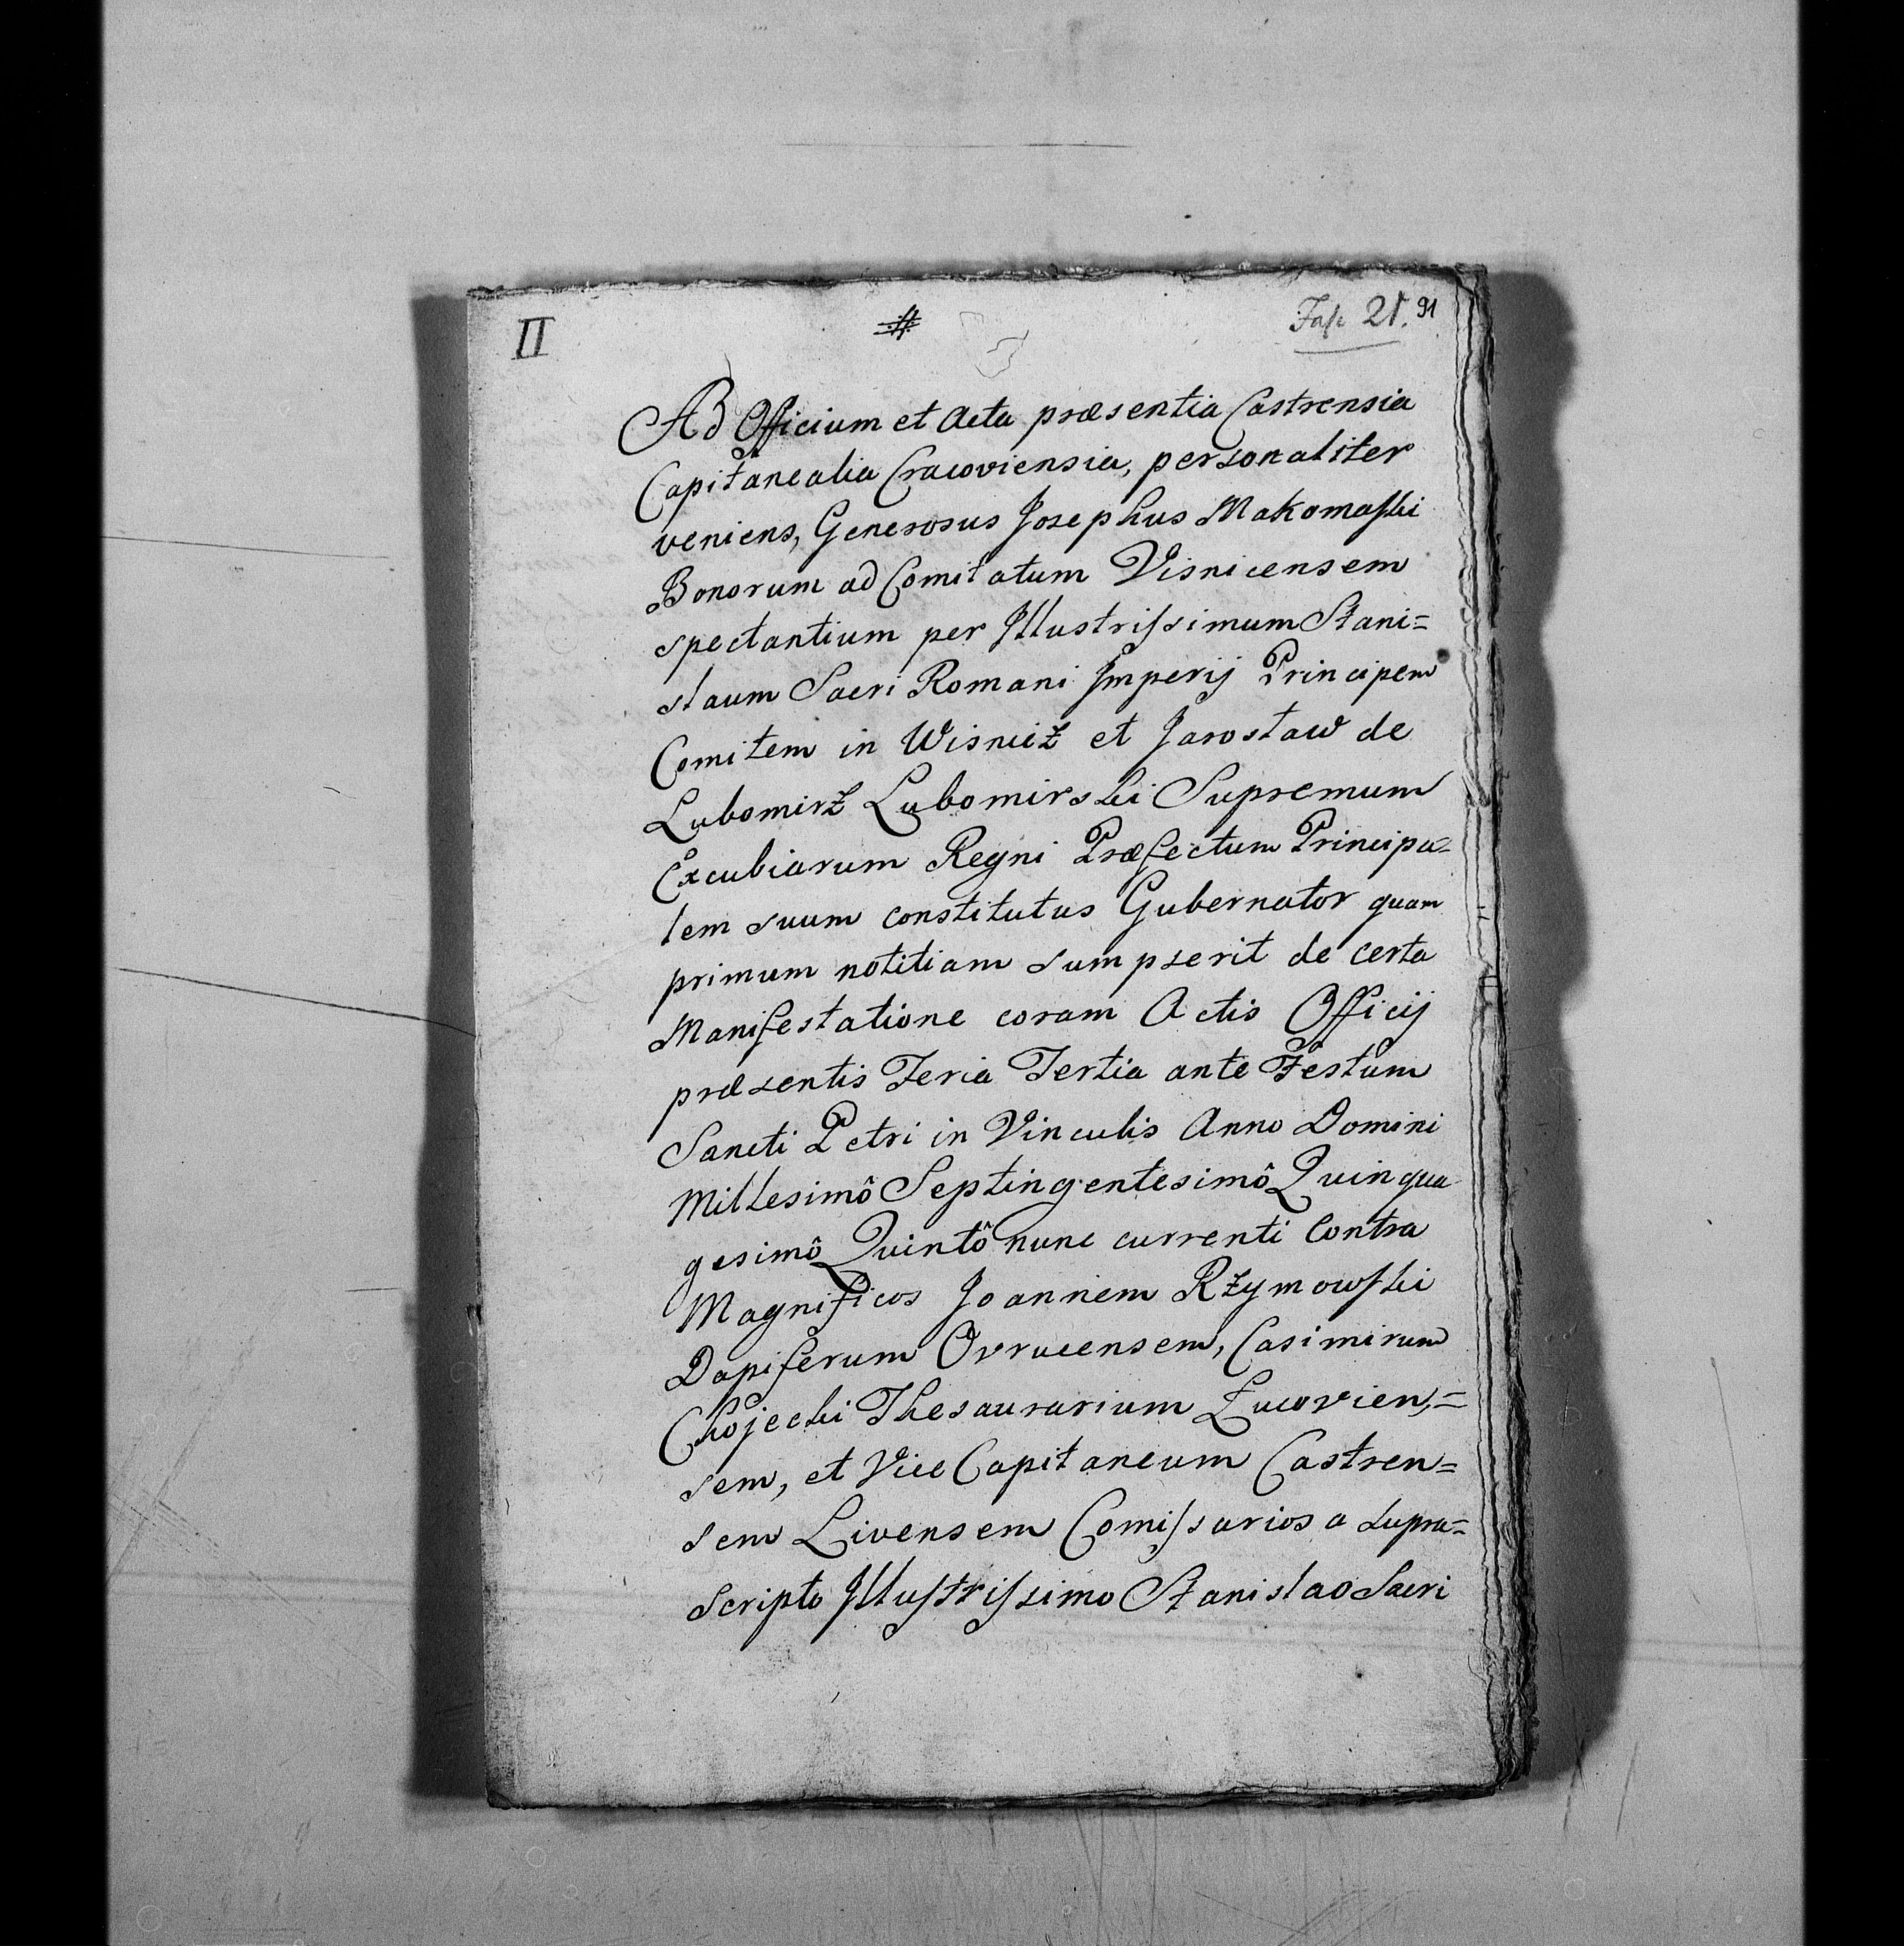 II
#
Fasc 21. 91
Ad Officium et Acta præsentia Castrensia
Capitanealia Cracoviensia, personaliter
veniens, Generosus Josephus Makomaſki
Bonorum ad Comitatum Visnicensem
spectantium per Jllustriſsimum Stani=
slaum Sacri Romani Jmperij Principem
Comitem in Wisnicz et Jarosław de
Lubomirz Lubomirski Supremum
Excubiarum Regni Præfectum Principa=
lem suum constitutus Gubernator quam
primum notitiam sumpserit de certa
Manifestatione coram Actis Officij
præsentis Feria Tertia ante Festum
Sancti Petri in Vinculis Anno Domini
Millesimô Septingentesimô Quinqua
gesimô Quintô nunc currenti Contra
Magnificos Joannem Rzymowſki
Dapiferum Ovrucensem, Casimirum
Chojecki Thesaurarium Łucovien,=
sem, et Vice Capitaneum Castren=
sem Livensem Comiſsarios a supra=
scripto Jlluſtriſsimo Stanislao Sacri